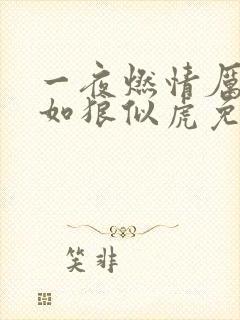 一夜燃情厉
如狼似虎免
笑非